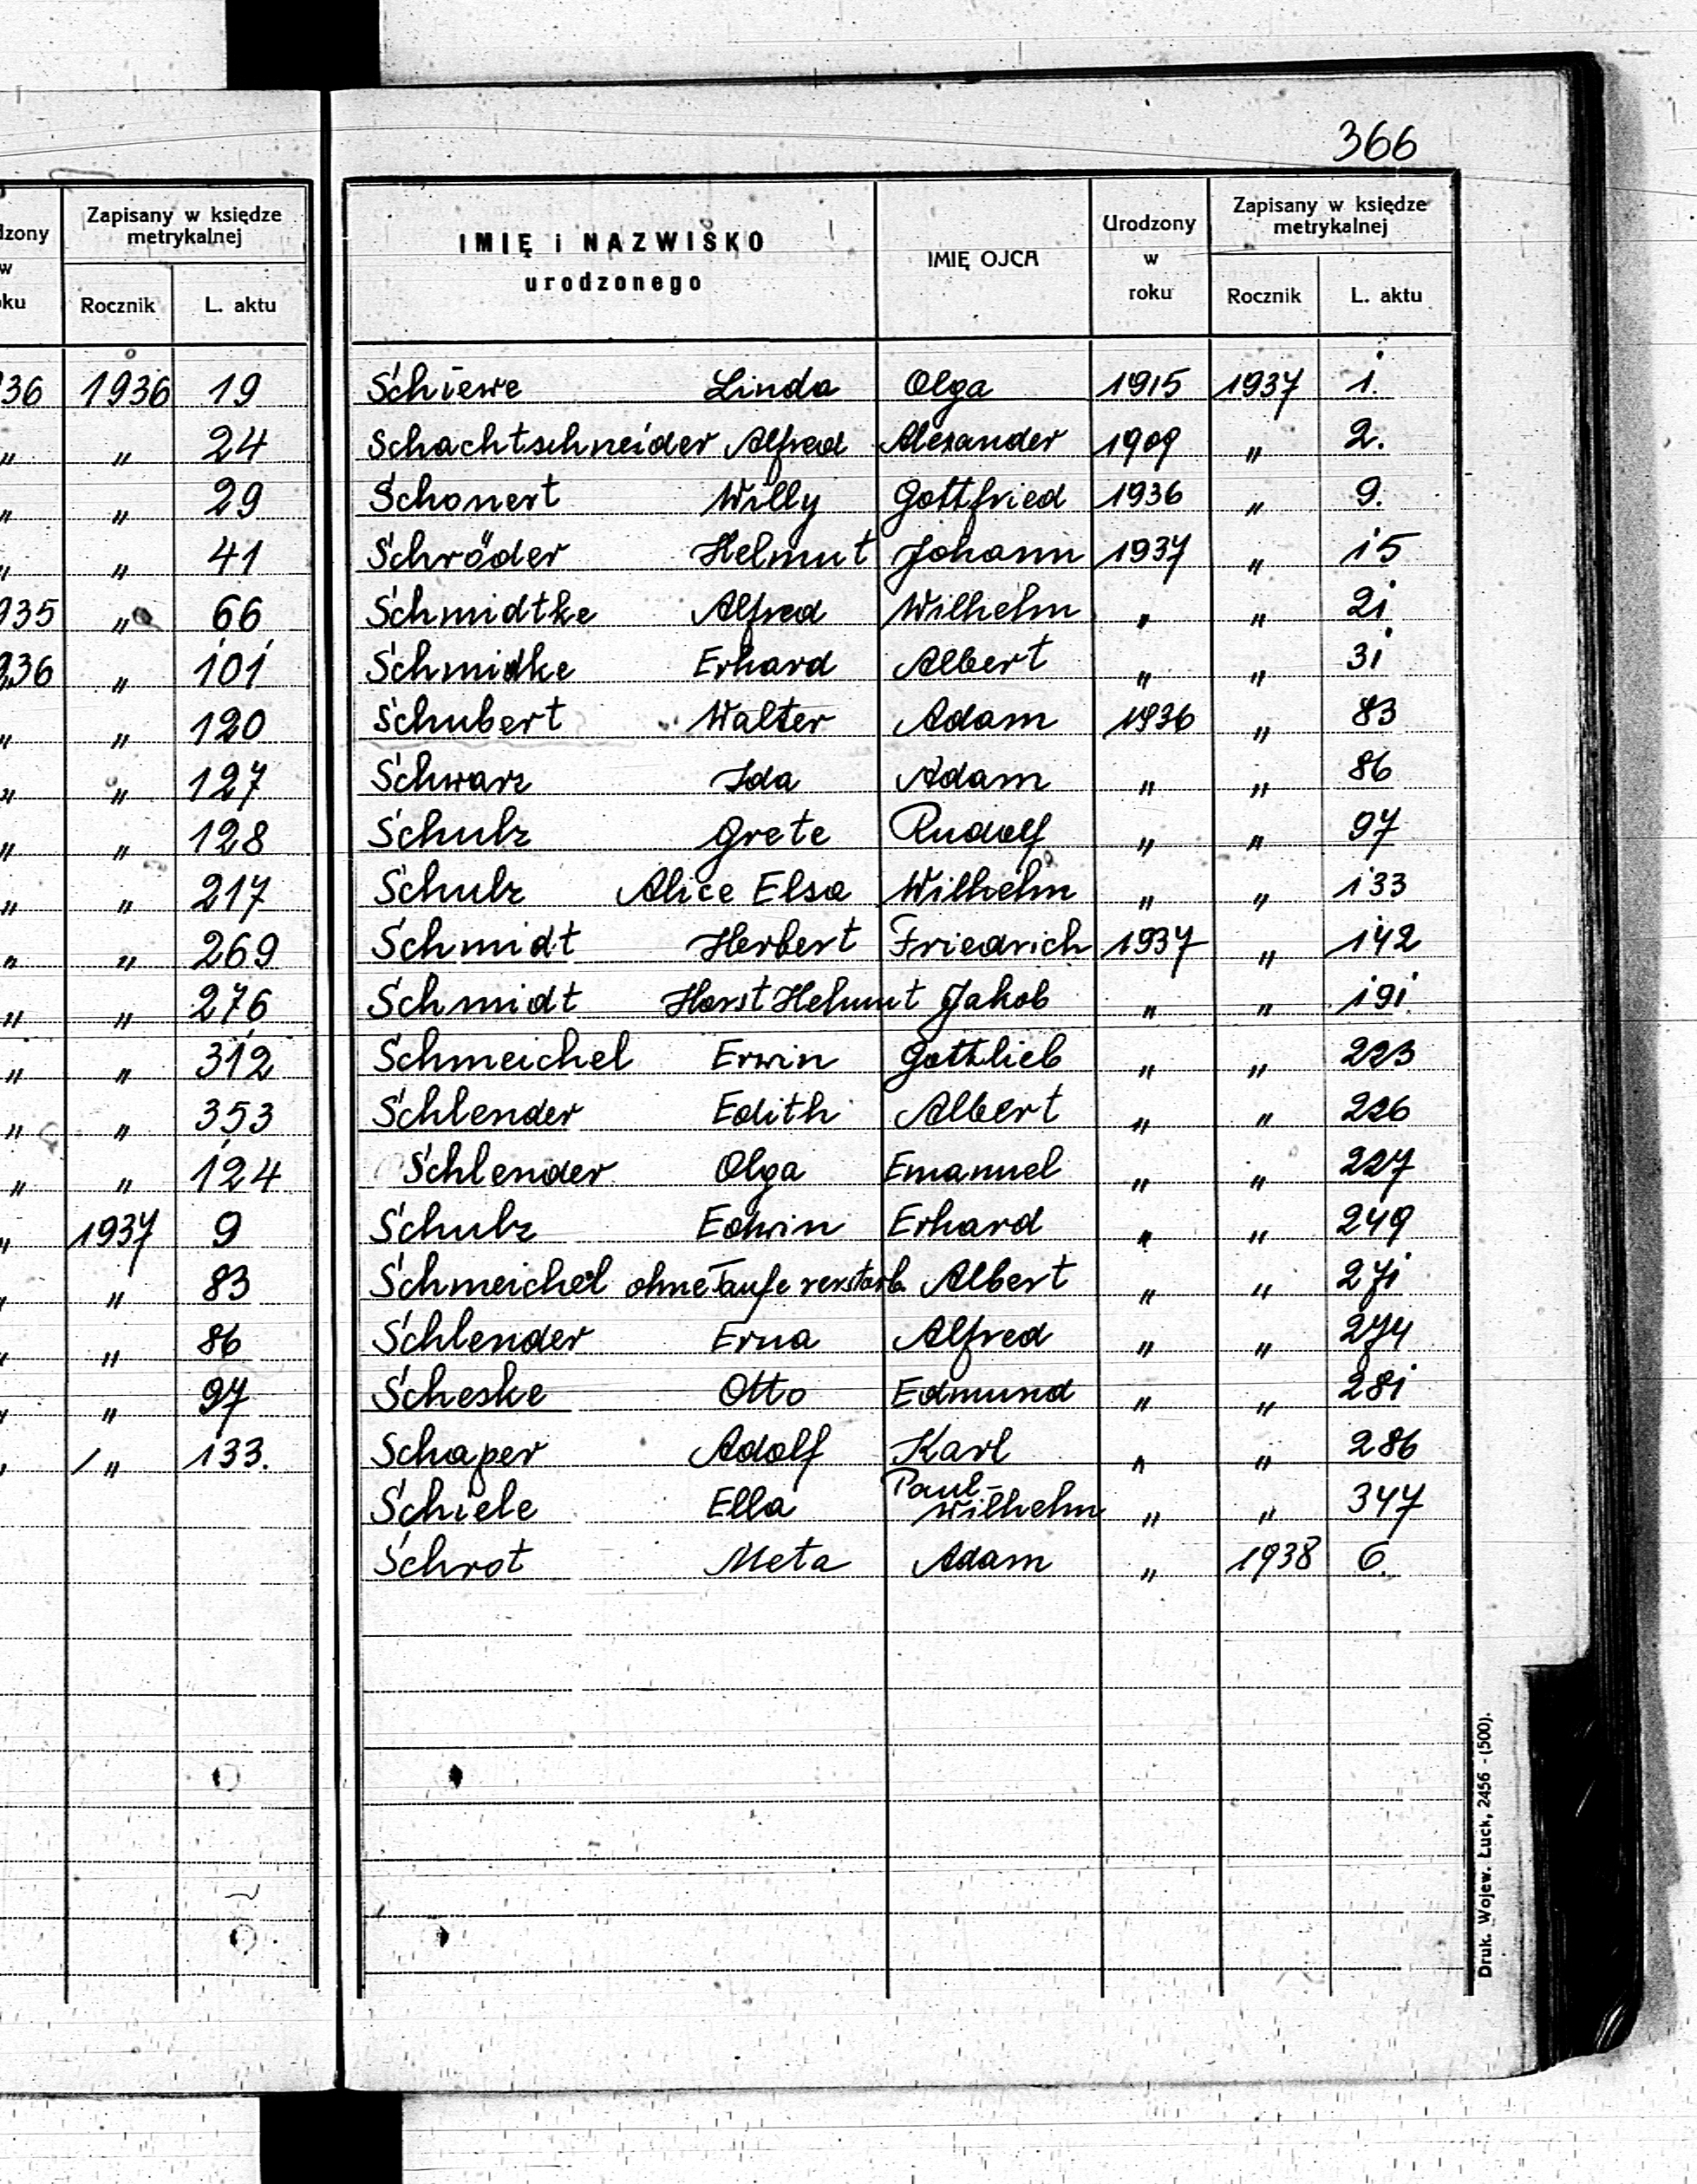 366
dzony
w
oku
Zapisany w księdze
metrykalnej
Rocznik L. aktu
36 1936 19
" " 24
" " 29
" " 41
935 " 66
936 " 101
" " 120
" " 127
" " 128
" " 217
" " 269
" " 276
" " 312
" " 353
" " 124
" 1937 9
" " 83
" " 86
" " 97
" " 133.
IMIĘ i NAZWISKO
urodzonego
IMIĘ OJCA
Urodzony
w
roku
Zapisany w księdze
metrykalnej
Rocznik L. aktu
Schiewe Linda Olga 1915 1937 1.
Schachtschneider Alfred Alexander 1909 " 2.
Schonert Willy Gottfried 1936 " 9.
Schröder Helmut Johann 1937 " 15
Schmidtke Alfred Wilhelm " " 21
Schmidke Erhard Albert " " 31
Schubert Walter Adam 1936 " 83
Schwarz Ida Adam " " 86
Schulz Grete Rudolf " " 97
Schulz Alice Elsa Wilhelm " " 133
Schmidt Herbert Friedrich 1937 " 142
Schmidt Horst Helmut Jakob " " 191.
Schmeichel Erwin Gottlieb " " 223
Schlender Edith Albert " " 226
Schlender Olga Emanuel " " 227
Schulz Edwin Erhard " " 249
Schmeichel ohne Taufe verstarb. Albert " " 271
Schlender Erna Alfred " " 274
Scheske Otto Edmund " " 281
Schaper Adolf Karl " " 286
Schiele Ella Paul-Wilhelm " " 347
Schrot Meta Adam " 1938 6.
Druk. Wojew. Łuck, 2456 - (500).